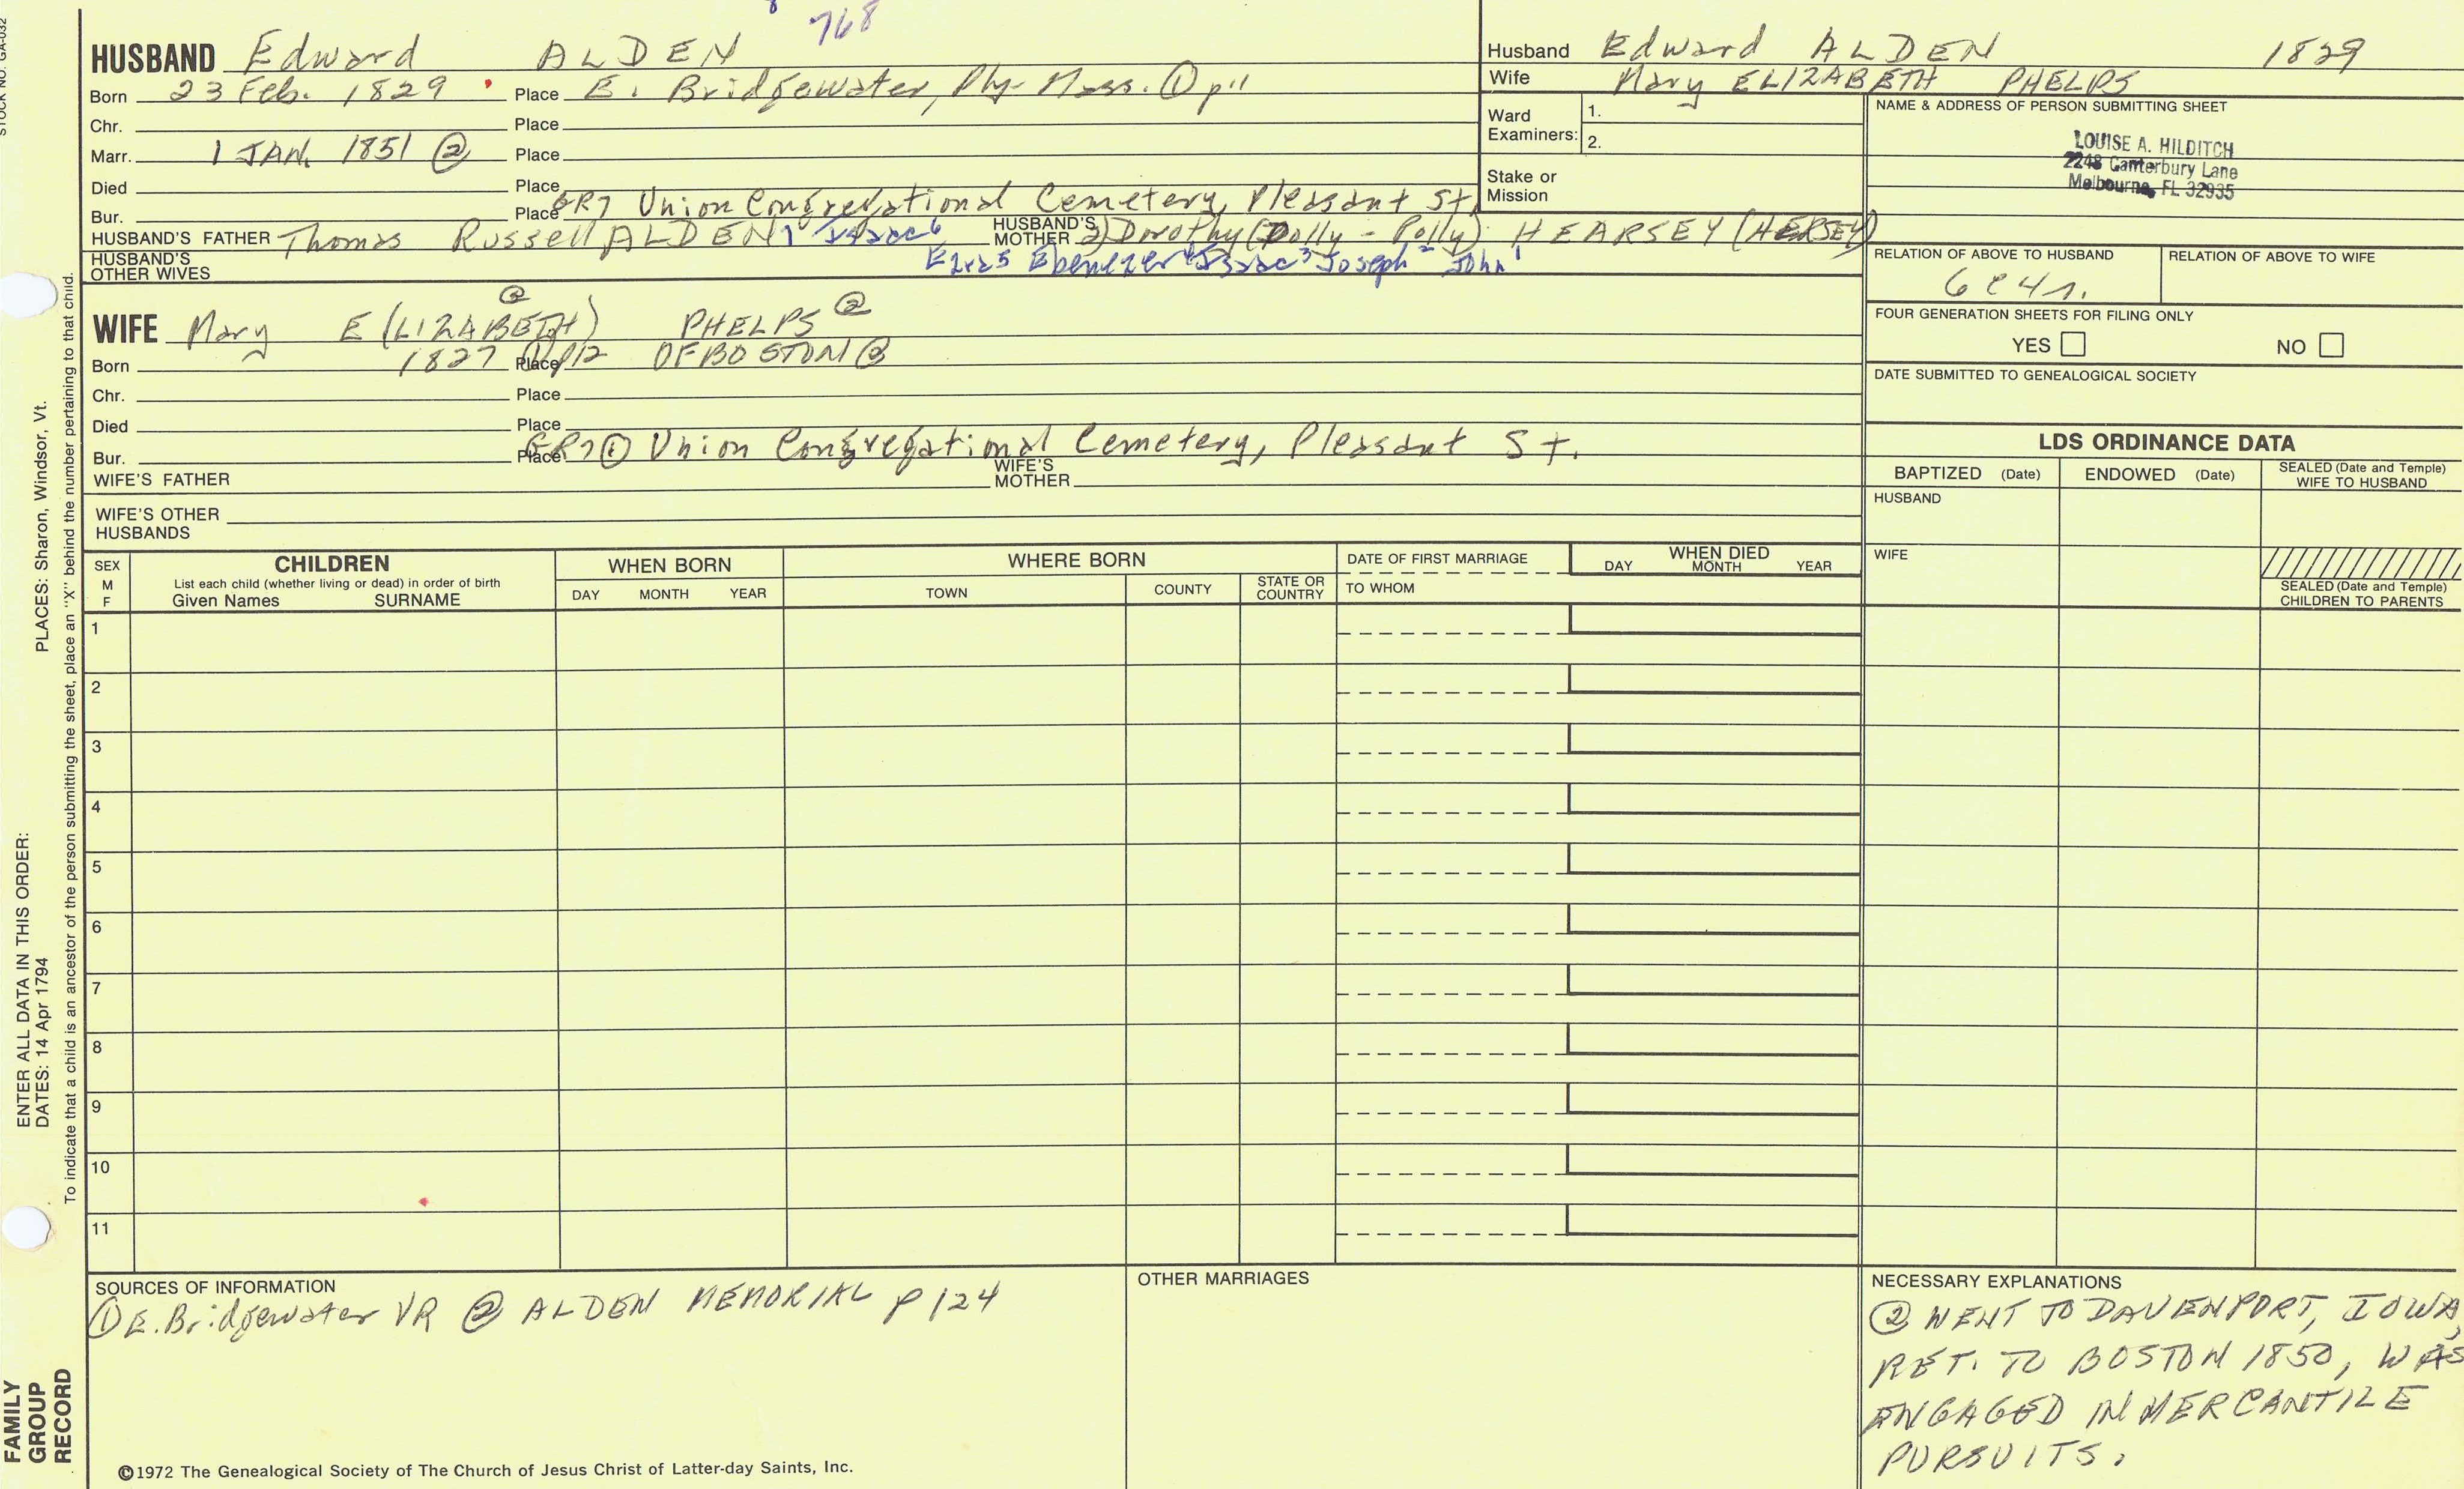 768
HUSBAND Edward ALDEN
Born 23 Feb. 1829 Place E. Bridgewater, Ply- Mass. ① p11
Chr. Place
Marr. 1 JAN. 1851 ② Place
Died Place
Bur. Place GR7 Union Congregational Cemetery, Pleasant St.
HUSBAND'S FATHER Thomas Russell ALDEN Isaac6 HUSBAND'S MOTHER 2) Dorothy (Dolly - Polly) HEARSEY (HERSEY)
HUSBAND'S OTHER WIVES Ezra5 Ebenezer4 Isaac3 Joseph2 John1
WIFE Mary E(LIZABETH) ② PHELPS ②
Born 1827 Place OF BOSTON ②
Chr. Place
Died Place
Bur. Place GR7 ① Union Congregational Cemetery, Pleasant St.
WIFE'S FATHER WIFE'S MOTHER
WIFE'S OTHER HUSBANDS
Husband Edward ALDEN 1829
Wife Mary ELIZABETH PHELPS
Ward Examiners: 1.
2.
Stake or Mission
NAME & ADDRESS OF PERSON SUBMITTING SHEET
LOUISE A. HILDITCH
2248 Canterbury Lane
Melbourne, FL 32935
RELATION OF ABOVE TO HUSBAND RELATION OF ABOVE TO WIFE
6c4r.
FOUR GENERATION SHEETS FOR FILING ONLY
YES NO
DATE SUBMITTED TO GENEALOGICAL SOCIETY
LDS ORDINANCE DATA
BAPTIZED (Date) ENDOWED (Date) SEALED (Date and Temple) WIFE TO HUSBAND
HUSBAND
WIFE
SEALED (Date and Temple) CHILDREN TO PARENTS
SEX M F
CHILDREN
List each child (whether living or dead) in order of birth
Given Names SURNAME
WHEN BORN
DAY MONTH YEAR
WHERE BORN
TOWN COUNTY STATE OR COUNTRY
DATE OF FIRST MARRIAGE
TO WHOM
WHEN DIED
DAY MONTH YEAR
1
2
3
4
5
6
7
8
9
10
11
SOURCES OF INFORMATION
① E. Bridgewater VR ② ALDEN MEMORIAL p 124
OTHER MARRIAGES
NECESSARY EXPLANATIONS
② WENT TO DAVENPORT, IOWA,
RET. TO BOSTON 1850, WAS
ENGAGED IN MERCANTILE
PURSUITS.
©1972 The Genealogical Society of The Church of Jesus Christ of Latter-day Saints, Inc.
STOCK NO. GA-032
PLACES: Sharon, Windsor, Vt.
To indicate that a child is an ancestor of the person submitting the sheet, place an "X" behind the number pertaining to that child.
ENTER ALL DATA IN THIS ORDER:
DATES: 14 Apr 1794
FAMILY
GROUP
RECORD